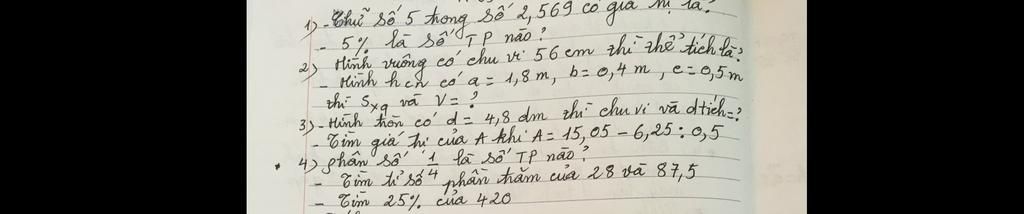 1) - Chữ số 5 trong số 2,569 có giá trị là?
- 5% là số TP nào?
2) - Hình vuông có chu vi 56 cm thì thể tích là?
- Hình hcn có a = 1,8 m, b = 0,4 m, c = 0,5 m
thì Sxq và V = ?
3) - Hình tròn có d = 4,8 dm thì chu vi và dtích = ?
- Tìm giá trị của A khi A = 15,05 - 6,25 : 0,5
4) phân số 1/4 là số TP nào?
- Tìm tỉ số phần trăm của 28 và 87,5
- Tìm 25% của 420